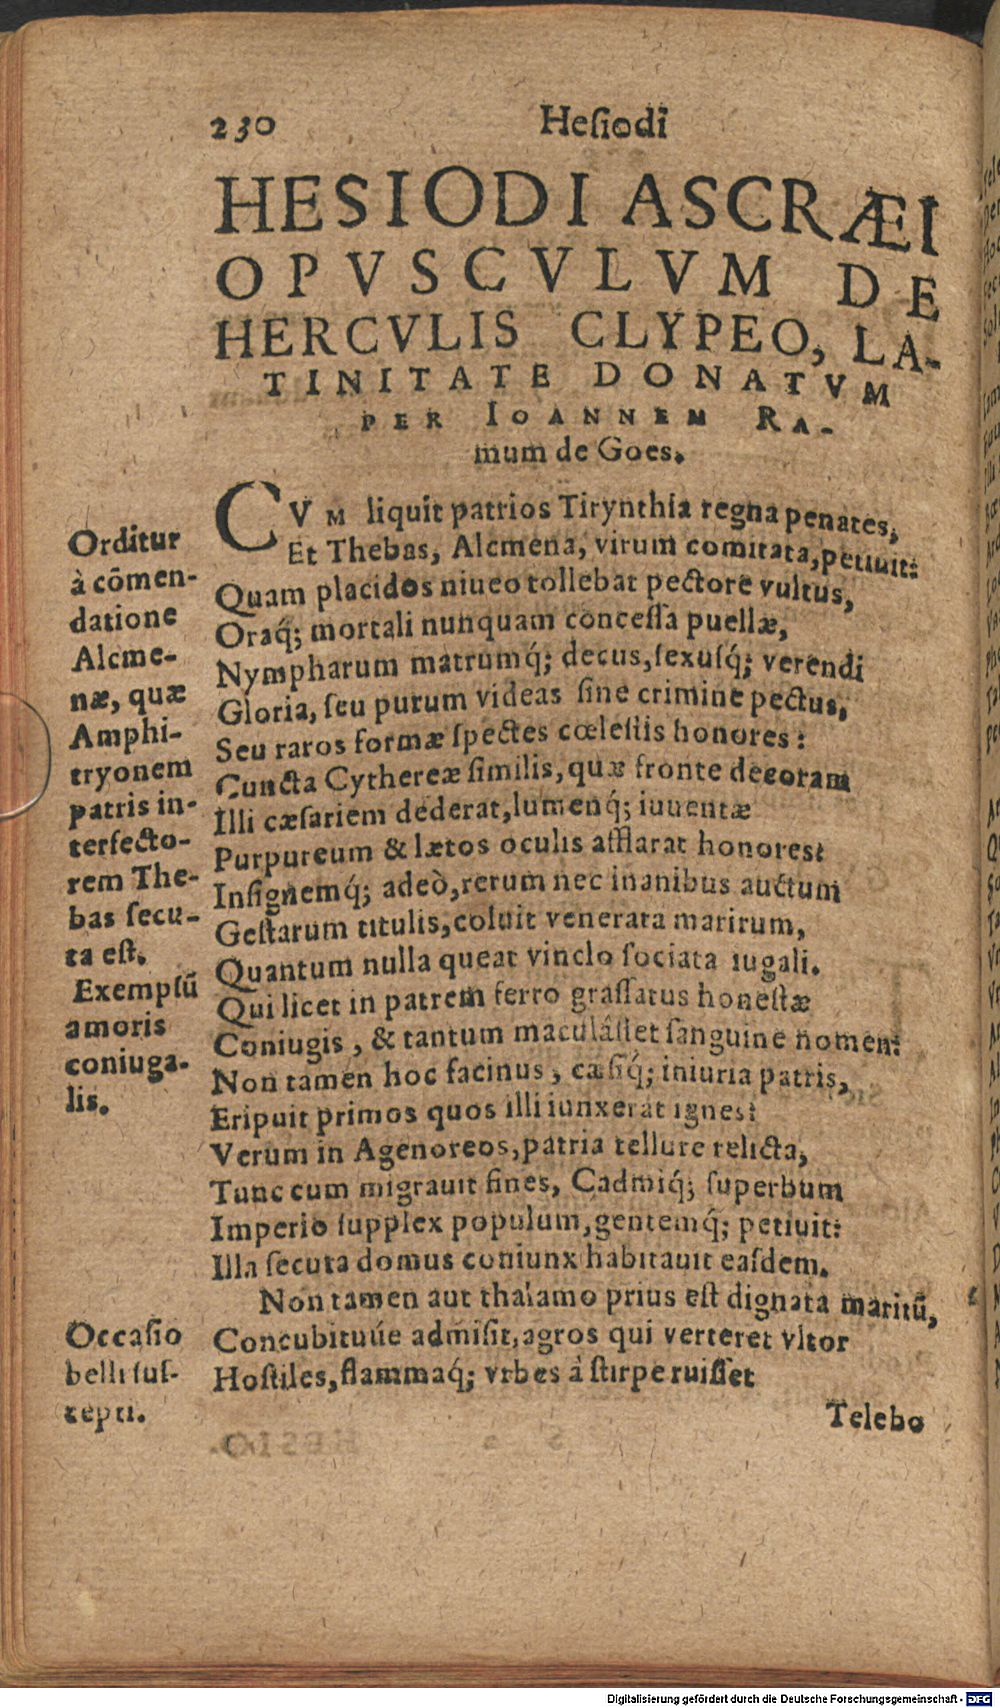 230 Hesiodi
HESIODI ASCRÆI
OPVSCVLVM DE
HERCVLIS CLYPEO, LA-
TINITATE DONATVM
PER IOANNEM RA-
mum de Goes.
CVM liquit patrios Tirynthia regna penates,
Et Thebas, Alcmena, virum comitata, petiuit:
Quam placidos niueo tollebat pectore vultus,
Oraq́; mortali nunquam concessa puellæ,
Nympharum matrumq́; decus, sexusq́; verendi
Gloria, seu purum videas sine crimine pectus,
Seu raros formæ spectes cœlestis honores:
Cuncta Cythereæ similis, quæ fronte decoram
Illi cæsariem dederat, lumenq́; iuuentæ
Purpureum & lætos oculis afflarat honores:
Insignemq́; adeò, rerum nec inanibus auctum
Gestarum titulis, coluit venerata maritum,
Quantum nulla queat vinclo sociata iugali.
Qui licet in patrem ferro grassatus honestæ
Coniugis, & tantum maculâsset sanguine nomen:
Non tamen hoc facinus, cæsiq́; iniuria patris,
Eripuit primos quos illi iunxerat ignes:
Verum in Agenoreos, patria tellure relicta,
Tunc cum migrauit fines, Cadmiq́; superbum
Imperio supplex populum, gentemq́; petiuit:
Illa secuta domus coniunx habitauit easdem.
Non tamen aut thalamo prius est dignata maritũ,
Concubituúe admisit, agros qui verteret vltor
Hostiles, flammaq́; vrbes à stirpe ruisset
Telebo
Orditur
à cõmen-
datione
Alcme-
næ, quæ
Amphi-
tryonem
patris in-
terfecto-
rem The-
bas secu-
ta est.
Exemplũ
amoris
coniuga-
lis.
Occasio
belli sus-
cepti.
Digitalisierung gefördert durch die Deutsche Forschungsgemeinschaft - DFG